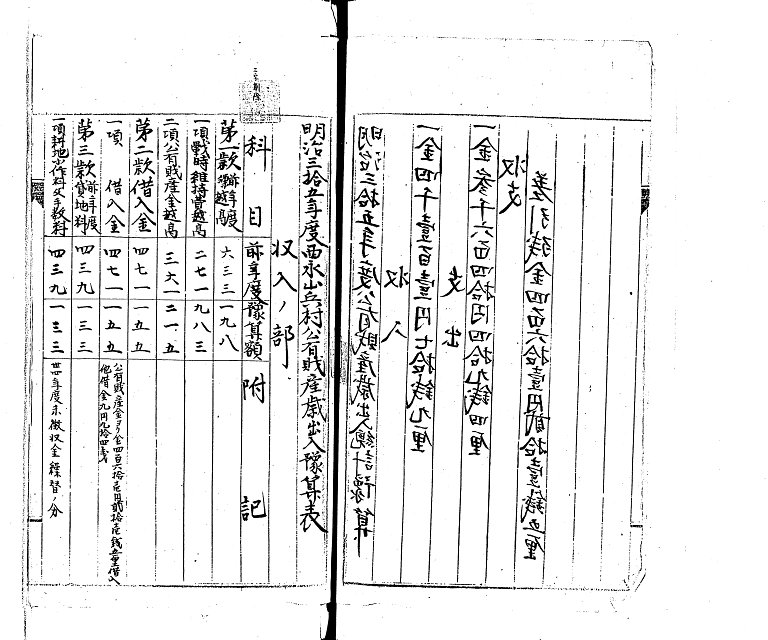 明治三拾五年度公有財産歳出入總計豫算
収入
一金四千壹百壹円七拾銭九厘
支出
一金參千六百四拾円四拾九銭四厘
収支
差引残金四百六拾壹円貳拾壹銭五厘
明治三拾五年度西永山兵村公有財産歳出入豫算表
収入ノ部
科目 前年度豫算額 附記
第一款 前年度繰越高 六三三一九八
一項戰時維持費越高 二七一九八三
二項公有財産金越高 三六一二一五
第二款借入金 四七一一五五
一項 借入金 四七一一五五 公有財産金ヨリ金四百六拾壱円貳拾壱銭五厘借入
他借金九円九拾四銭
第三款 前年度貸地料 四三九一三三
一項耕地小作料及手数料 四三九一三三 卅四年度未徴収金繰替ノ分